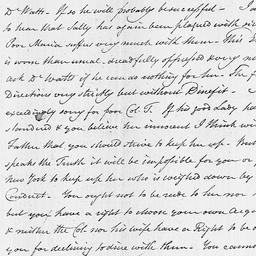 Dr Watts – If so he will probably be successful – I a
to hear that Sally has again been plagued with
Poor Maria suffers very much with them – This
is worse than usual. dreadfully oppressed & very
ask Dr Watts if he can do nothing for her – She
Directions very strictly but without Benefit –
exceedingly sorry for poor Col. T. If his good Lady ha
slandered & you believe her innocent I think wi
Father that you should strive to keep her up – But
speaks the Truth it will be impossible for you or
New York to keep up her who is weighed down by
Conduct – You ought not to be rude to her nor
but you have a right to choose your own
& neither the Col nor his wife have a Right to be o
you for declining to dine with them – You cannot